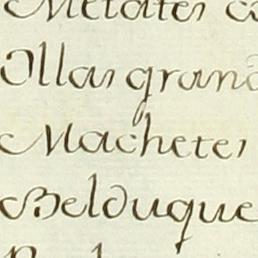 Metates
Ollas grand
Machetes
Belduque